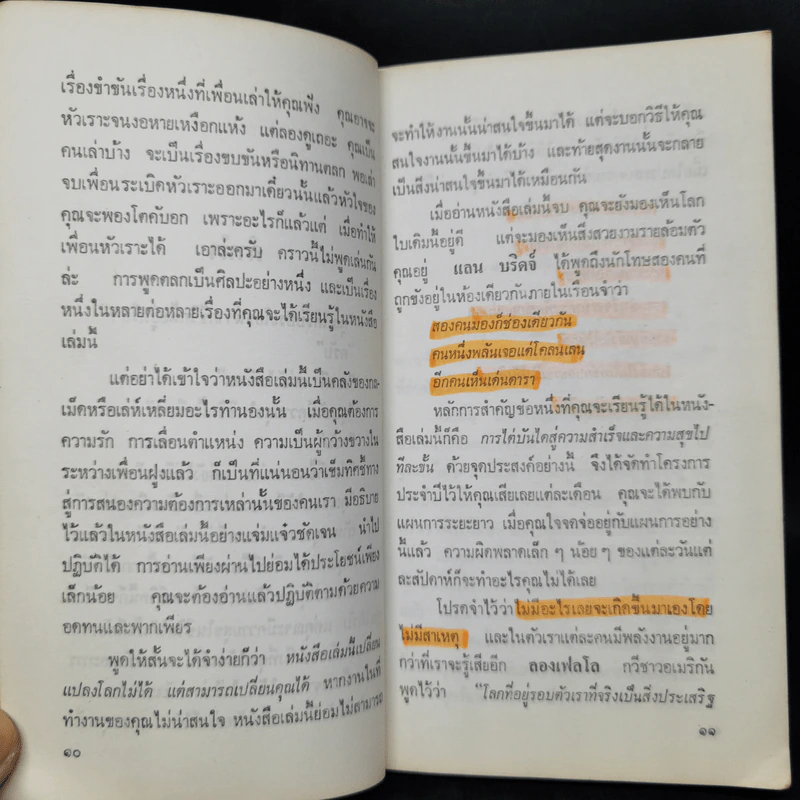 เรื่องขำขันเรื่องหนึ่งที่เพื่อนเล่าให้คุณฟัง คุณอาจจะ
หัวเราะจนงอหายเหงือกแห้ง แต่ลองดูเถอะ คุณเป็น
คนเล่าบ้าง จะเป็นเรื่องขบขันหรือนิทานตลก พอเล่า
จบเพื่อนระเบิดหัวเราะออกมาเดี๋ยวนั้นแล้วหัวใจของ
คุณจะพองโตคับอก เพราะอะไรก็แล้วแต่ เมื่อทำให้
เพื่อนหัวเราะได้ เอาล่ะครับ คราวนี้ไม่พูดเล่นกัน
ล่ะ การพูดตลกเป็นศิลปะอย่างหนึ่ง และเป็นเรื่อง
หนึ่งในหลายต่อหลายเรื่องที่คุณจะได้เรียนรู้ในหนังสือ
เล่มนี้
แต่อย่าได้เข้าใจว่าหนังสือเล่มนี้เป็นคลังของกล-
เม็ดหรือเล่ห์เหลี่ยมอะไรทำนองนั้น เมื่อคุณต้องการ
ความรัก การเลื่อนตำแหน่ง ความเป็นผู้กว้างขวางใน
ระหว่างเพื่อนฝูงแล้ว ก็เป็นที่แน่นอนว่าเข็มทิศชี้ทาง
สู่การสนองความต้องการเหล่านั้นของคนเรา มีอธิบาย
ไว้แล้วในหนังสือเล่มนี้อย่างแจ่มแจ๋วชัดเจน นำไป
ปฏิบัติได้ การอ่านเพียงผ่านไปย่อมได้ประโยชน์เพียง
เล็กน้อย คุณจะต้องอ่านแล้วปฏิบัติตามด้วยความ
อดทนและพากเพียร
พูดให้สั้นจะได้จำง่ายก็ว่า หนังสือเล่มนี้เปลี่ยน
แปลงโลกไม่ได้ แต่สามารถเปลี่ยนคุณได้ หากงานในที่
ทำงานของคุณไม่น่าสนใจ หนังสือเล่มนี้ย่อมไม่สามารถ
๑๐
จะทำให้งานนั้นน่าสนใจขึ้นมาได้ แต่จะบอกวิธีให้คุณ
สนใจงานนั้นขึ้นมาได้บ้าง และท้ายสุดงานนั้นจะกลาย
เป็นสิ่งน่าสนใจขึ้นมาได้เหมือนกัน
เมื่ออ่านหนังสือเล่มนี้จบ คุณจะยังมองเห็นโลก
ใบเดิมนี้อยู่ดี แต่จะมองเห็นสิ่งสวยงามรายล้อมตัว
คุณอยู่ แลน บริดจ์ ได้พูดถึงนักโทษสองคนที่
ถูกขังอยู่ในห้องเดียวกันภายในเรือนจำว่า
สองคนมองก็ช่องเดียวกัน
คนหนึ่งพลันเจอแต่โคลนเลน
อีกคนเห็นเด่นดารา
หลักการสำคัญข้อหนึ่งที่คุณจะเรียนรู้ได้ในหนัง-
สือเล่มนี้ก็คือ การไต่บันไดสู่ความสำเร็จและความสุขไป
ทีละขั้น ด้วยจุดประสงค์อย่างนี้ จึงได้จัดทำโครงการ
ประจำปีไว้ให้คุณเสียเลยแต่ละเดือน คุณจะได้พบกับ
แผนการระยะยาว เมื่อคุณใจจดจ่ออยู่กับแผนการอย่าง
นี้แล้ว ความผิดพลาดเล็ก ๆ น้อย ๆ ของแต่ละวันแต่
ละสัปดาห์ก็จะทำอะไรคุณไม่ได้เลย
โปรดจำไว้ว่า ไม่มีอะไรเลยจะเกิดขึ้นมาเองโดย
ไม่มีสาเหตุ และในตัวเราแต่ละคนมีพลังงานอยู่มาก
กว่าที่เราจะรู้เสียอีก ลองเฟลโล กวีชาวอเมริกัน
พูดไว้ว่า "โลกที่อยู่รอบตัวเราที่จริงเป็นสิ่งประเสริฐ
๑๑